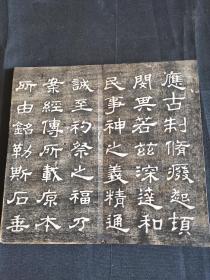 應古制脩廢起頓
閔其若茲深達和
民事神之義精通
誠至礿祭之福乃
案經傳所載原本
所由銘勒斯石垂